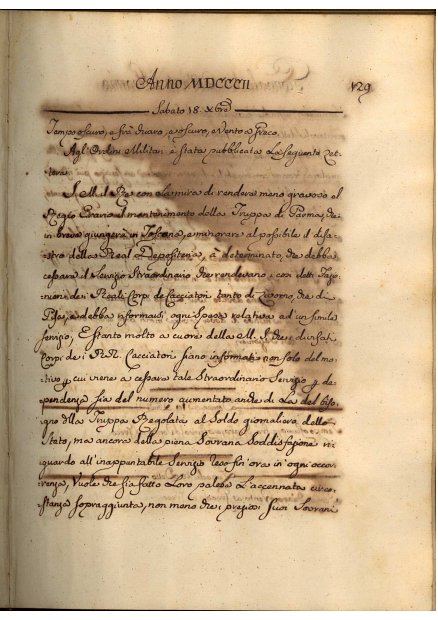 Anno MDCCCII
129
Sabato 18. Xbre
Tempo oscuro, e fra chiaro, e oscuro, e Vento a Greco.
Agl'Ordini Militari è stata pubblicata La seguente Let-
tera.
S. M. il Re con La mira di rendere meno gravoso al
Regio Erario il mantenimento della Truppa di Parma, che
in breve giungerà in Toscana, e minorare al possibile il disa-
stro della Real Depositeria, à determinato, che debba
cessare il Servizio Straordinario, che rendevano
de i Reali Corpi de Cacciatori tanto di Livorno, che di
Pisa, e debba ogni spesa relativa ad un simile
servizio, E stanto molto a cuore della M. S. che i
Corpi de i RR. Cacciatori siano informati non solo del mo-
tivo p cui viene a cessare tale Straordinario Servizio p de-
pendenza sia del numero aumentato anche di La del biso-
gno della Truppa Regolata al Soldo giornaliero dello
Stato, ma ancora della piena Sovrana Soddisfazione ri-
guardo all'inappuntabile Servizio reso fin'ora in ogni occor-
renza, Vuole che sia fatto Loro palese L'accennata circo-
stanza sopraggiunta, non meno che i preziosi suoi Sovrani